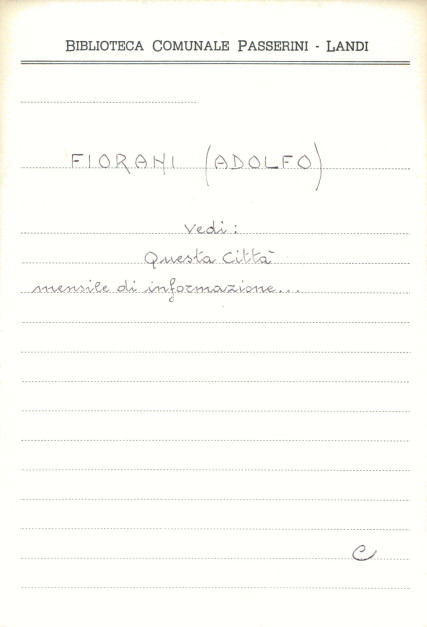 BIBLIOTECA COMUNALE PASSERINI - LANDI
FIORANI (ADOLFO)
Vedi:
Questa Città
mensile di informazione...
C